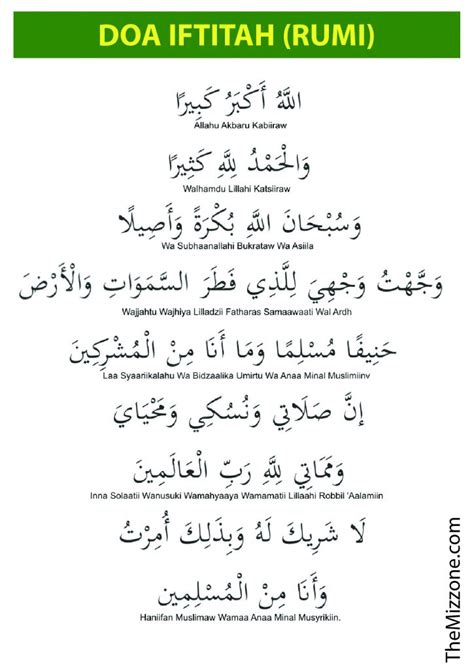 DOA IFTITAH (RUMI)
اللَّهُ أَكْبَرُ كَبِيرًا
Allahu Akbaru Kabiiraw
وَالْحَمْدُ لِلَّهِ كَثِيرًا
Walhamdu Lillahi Katsiiraw
وَسُبْحَانَ اللَّهِ بُكْرَةً وَأَصِيلًا
Wa Subhaanallahi Bukrataw Wa Asiila
وَجَّهْتُ وَجْهِيَ لِلَّذِي فَطَرَ السَّمَوَاتِ وَالْأَرْضَ
Wajjahtu Wajhiya Lilladzii Fatharas Samaawaati Wal Ardh
حَنِيفًا مُسْلِمًا وَمَا أَنَا مِنْ الْمُشْرِكِينَ
Laa Syaariikalahu Wa Bidzaalika Umirtu Wa Anaa Minal Muslimiinv
إِنَّ صَلَاتِي وَنُسُكِي وَمَحْيَايَ
وَمَمَاتِي لِلَّهِ رَبِّ الْعَالَمِينَ
Inna Solaatii Wanusuki Wamahyaaya Wamamatii Lillaahi Robbil 'Aalamiin
لَا شَرِيكَ لَهُ وَبِذَلِكَ أُمِرْتُ
وَأَنَا مِنْ الْمُسْلِمِينَ
Haniifan Muslimaw Wamaa Anaa Minal Musyrikiin.
TheMizzone.com